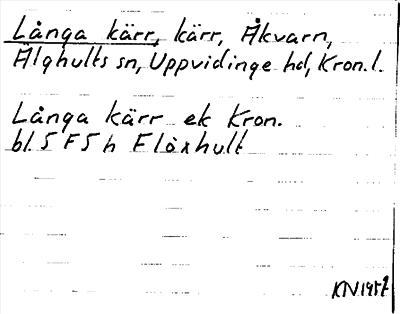 Långa kärr, kärr, Åkvarn,
Älghults sn, Uppvidinge hd, Kron. l.
Långa kärr ek Kron.
bl. 5 F 5 h Flöxhult
KN 1957